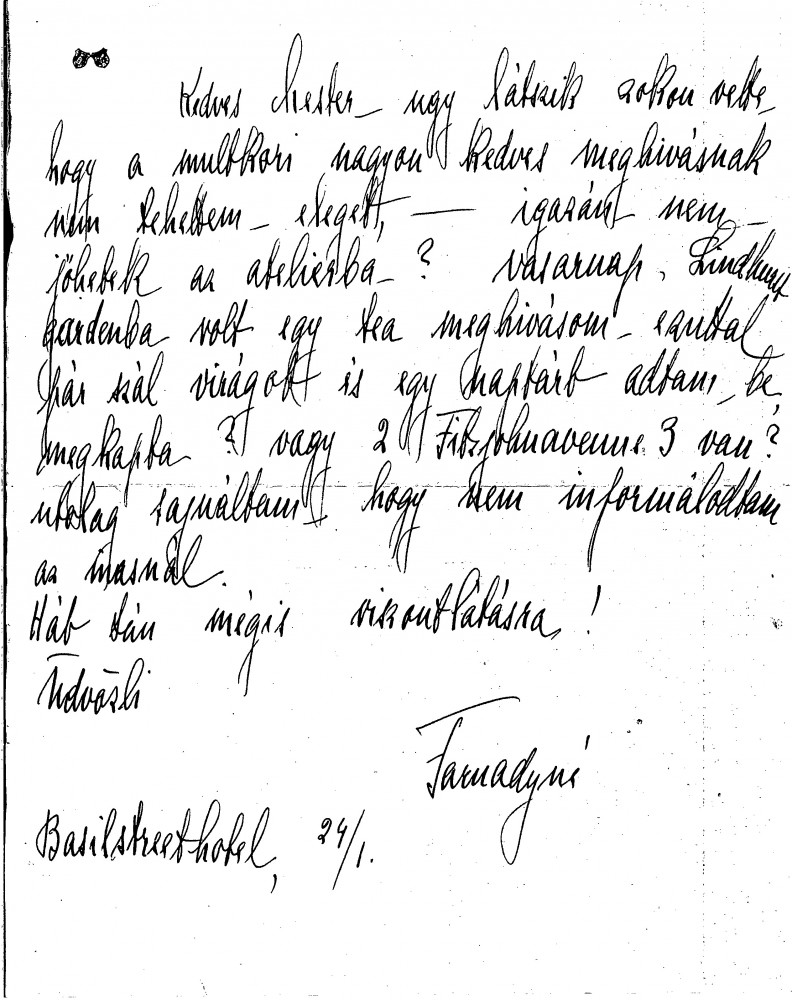 Kedves Mester – ugy látszik zokon vette –
hogy a multkori nagyon kedves meghivásnak
nem tehettem – eleget, — igazán nem –
jöhetek az atelierba – ? vasarnap, Lindhurst
gardenba volt egy tea meghivásom – ezuttal
pár szál virágot és egy naptárt adtam, be
megkapta ? vagy 2 Fitzjohnavenue 3 van ?
utolag sajnáltam – hogy nem informálodtam
az inasnál.
Hát tán mégis viszontlátásra, !
Üdvözli
Farnadyné
Basilstreethotel, 24/1.